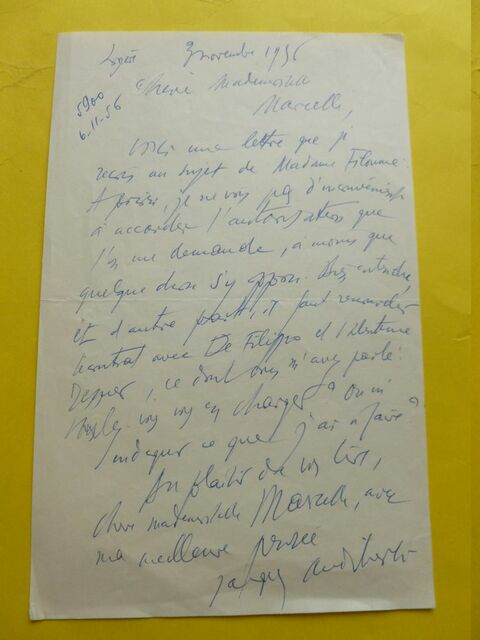 3 novembre 1956
5900
6-11-56
Chère Mademoiselle
Marcelle,
Voici une lettre que je
reçois au sujet de Madame Filoumé.
A priori, je ne vois pas d'inconvénient
à accorder l'autorisation que
l'on me demande, à moins que
quelque chose s'y oppose. Bien entendu,
et d'autre part, il faut renouveler
contrat avec De Filippo et
ce dont vous m'avez parlé.
Voulez-vous vous en charger? Ou m'
indiquer ce que j'ai à faire?
Au plaisir de vous lire,
chère mademoiselle Marcelle, avec
ma meilleure pensée
Jacques Audiberti